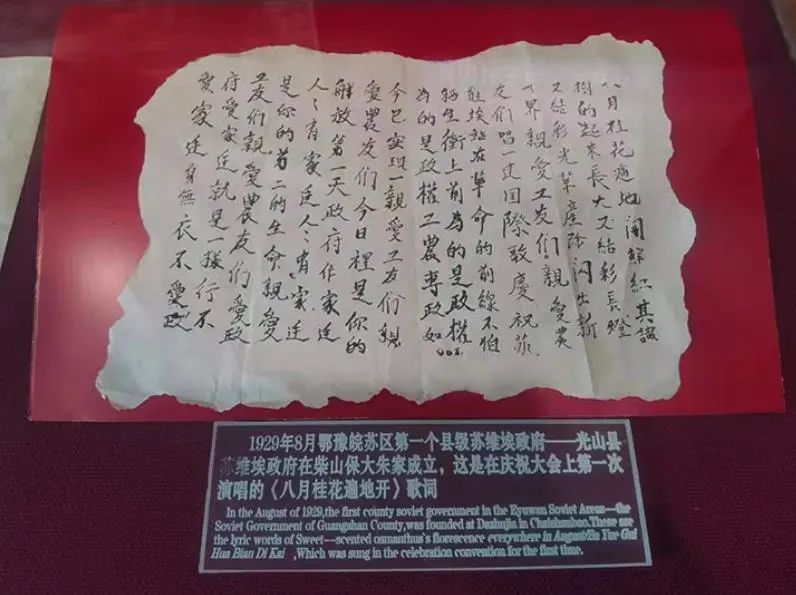 八月桂花遍地開鮮紅其識
樹的起来長大又結彩長燈
又结彩光草產除闪出新
世界親愛工友們親愛農
友們唱一这国際歌慶祝菲
维埃站在革命的前線不怕
牺生衝上前為的是政權
為的是政權工農專政如
今已实现一親愛工友们親
愛農友们今日裡是你的
解放第一天政府作家廷
人々有家廷人々有家廷
是你的第二的生命親愛
工友们親愛農友们愛政
府愛家廷就是一樣行不
愛家廷身無衣不愛政
1929年8月鄂豫皖苏区第一个县级苏维埃政府——光山县
苏维埃政府在柴山保大朱家成立，这是在庆祝大会上第一次
演唱的《八月桂花遍地开》歌词
In the August of 1929,the first county soviet government in the Eyuwan Soviet Areas—the
Soviet Government of Guangshan County,was founded at Dazhujia in Chaishanbao.These are
the lyric words of Sweet--scented osmanthus's florescence everywhere in August/Ba Yue Gui
Hua Bian Di Kai ,Which was sung in the celebration convention for the first time.